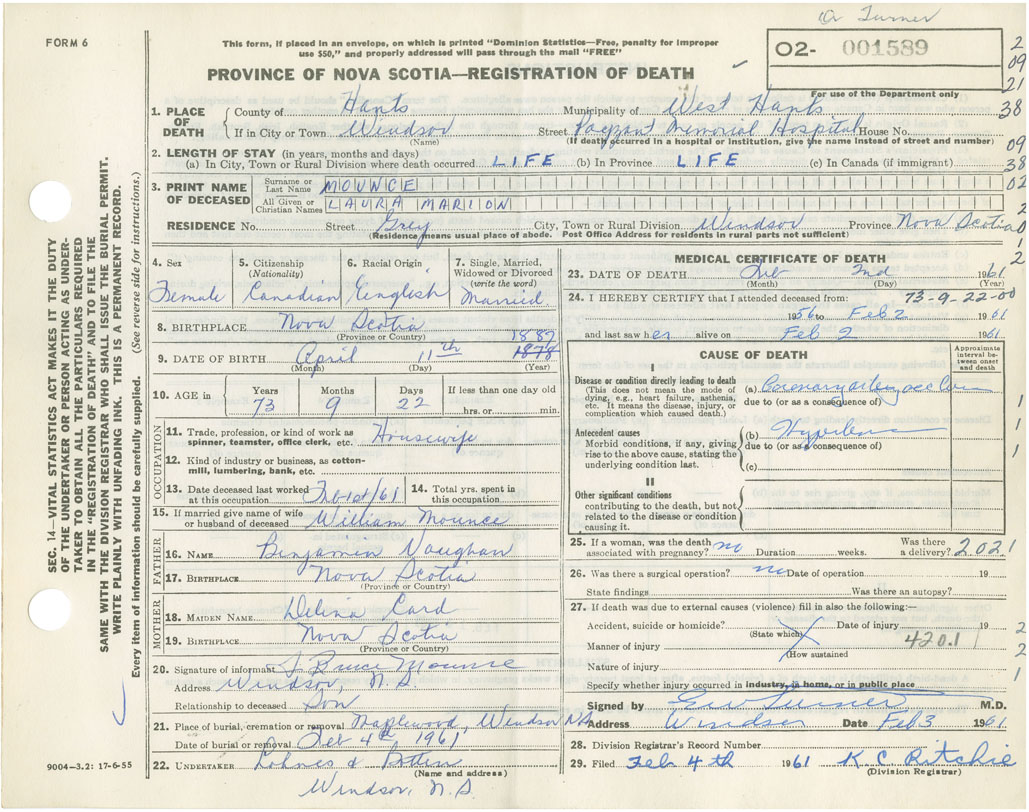 Dr Turner
FORM 6
This form, if placed in an envelope, on which is printed "Dominion Statistics—Free, penalty for improper
use $50," and properly addressed will pass through the mail "FREE"
O2- 001589
For use of the Department only
PROVINCE OF NOVA SCOTIA—REGISTRATION OF DEATH
1. PLACE OF DEATH
County of Hants Municipality of West Hants
If in City or Town Windsor Street Payzant Memorial Hospital House No.
(Name) (If death occurred in a hospital or institution, give the name instead of street and number)
2. LENGTH OF STAY (in years, months and days)
(a) In City, Town or Rural Division where death occurred LIFE (b) In Province LIFE (c) In Canada (if immigrant)
3. PRINT NAME OF DECEASED
Surname or Last Name MOUNCE
All Given or Christian Names LAURA MARION
RESIDENCE No. Street Grey City, Town or Rural Division Windsor Province Nova Scotia
(Residence means usual place of abode. Post Office Address for residents in rural parts not sufficient)
4. Sex
Female
5. Citizenship
(Nationality)
Canadian
6. Racial Origin
English
7. Single, Married, Widowed or Divorced
(write the word)
Married
8. BIRTHPLACE Nova Scotia
(Province or Country)
9. DATE OF BIRTH April 11th 1878 1887
(Month) (Day) (Year)
10. AGE in
Years Months Days If less than one day old
73 9 22 hrs. or min.
OCCUPATION
11. Trade, profession, or kind of work as
spinner, teamster, office clerk, etc. Housewife
12. Kind of industry or business, as cotton-
mill, lumbering, bank, etc.
13. Date deceased last worked
at this occupation Feb 1st/61
14. Total yrs. spent in
this occupation
15. If married give name of wife
or husband of deceased William Mounce
FATHER
16. NAME Benjamin Vaughan
17. BIRTHPLACE Nova Scotia
(Province or Country)
MOTHER
18. MAIDEN NAME Delina Card
19. BIRTHPLACE Nova Scotia
(Province or Country)
20. Signature of informant J. Bruce Mounce
Address Windsor, N.S.
Relationship to deceased Son
21. Place of burial, cremation or removal Maplewood, Windsor NS
Date of burial or removal Feb 4th 1961
22. UNDERTAKER
(Name and address)
Windsor, N.S.
9004—3.2: 17-6-55
MEDICAL CERTIFICATE OF DEATH
23. DATE OF DEATH Feb 2nd 1961
(Month) (Day) (Year)
24. I HEREBY CERTIFY that I attended deceased from: 73-9-22-00
1956 to Feb 2 1961
and last saw her alive on Feb 2 1961
CAUSE OF DEATH
Approximate interval between onset and death
I
Disease or condition directly leading to death
(This does not mean the mode of
dying, e.g., heart failure, asthenia,
etc. It means the disease, injury, or
complication which caused death.)
(a) Coronary artery
due to (or as a consequence of)
Antecedent causes
Morbid conditions, if any, giving
rise to the above cause, stating the
underlying condition last.
(b)
due to (or as a consequence of)
(c)
II
Other significant conditions
contributing to the death, but not
related to the disease or condition
causing it.
25. If a woman, was the death
associated with pregnancy? no Duration weeks. Was there a delivery? 2021
26. Was there a surgical operation? no Date of operation 19
State findings Was there an autopsy?
27. If death was due to external causes (violence) fill in also the following:—
Accident, suicide or homicide? Date of injury 19
(State which)
Manner of injury 420.1
(How sustained
Nature of injury
Specify whether injury occurred in industry, in home, or in public place
Signed by Turner M.D.
Address Windsor Date Feb 3 1961
28. Division Registrar's Record Number
29. Filed Feb 4th 1961 K. C. Ritchie
(Division Registrar)
SEC. 14—VITAL STATISTICS ACT MAKES IT THE DUTY
OF THE UNDERTAKER OR PERSON ACTING AS UNDER-
TAKER TO OBTAIN ALL THE PARTICULARS REQUIRED
IN THE "REGISTRATION OF DEATH" AND TO FILE THE
SAME WITH THE DIVISION REGISTRAR WHO SHALL ISSUE THE BURIAL PERMIT.
WRITE PLAINLY WITH UNFADING INK. THIS IS A PERMANENT RECORD.
Every item of information should be carefully supplied. (See reverse side for instructions.)
2
09
21
38
09
38
02
2
0
1
2
1
1
1
1
2
2
1